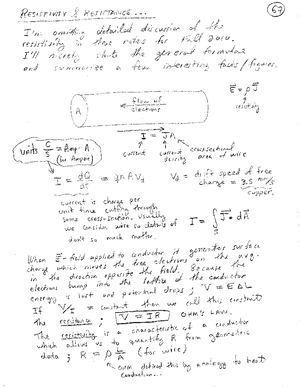 RESISTIVITY & RESISTANCE...
67
I'm omitting detailed discussion of the
resistivity in these notes for Fall 2012.
I'll merely state the general formulas
and summarize a few interesting facts/figures.
flow of
electrons
A
E = ρJ
resistivity
I = JA
current
current density
cross sectional area of wire
units C/S = Amp. A
(for Ampere)
I = dQ/dt = qnAVd
Vd = drift speed of free
charge
copper.
current is charge per
unit time cutting through
some cross-section. Usually
we consider wire so details of
don't so much matter.
I = ∫ J · dA
When E-field applied to conductor it generates surface
charge which moves the free electrons on the avg.
in the direction opposite the field. Because the
electrons bump into the lattice of the conductor
energy is lost and potential drops; V = EΔL
If V/I = constant then we call this constant
The resistance; V = IR OHM'S LAW.
The resistivity is a characteristic of a conductor
which allows us to quantify R from geometric
data; R = ρL/A (for wire)
Ohm defined this by analogy to heat
conduction...